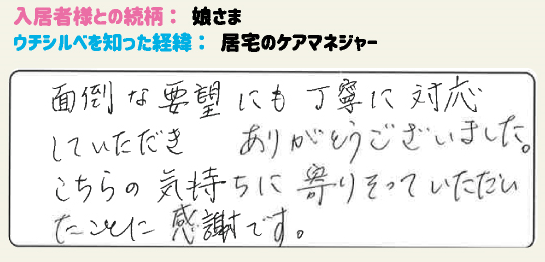 入居者様との続柄： 娘さま
ウチシルベを知った経緯： 居宅のケアマネジャー
面倒な要望にも丁寧に対応
していただき ありがとうございました。
こちらの気持ちに寄りそっていただい
たことに感謝です。